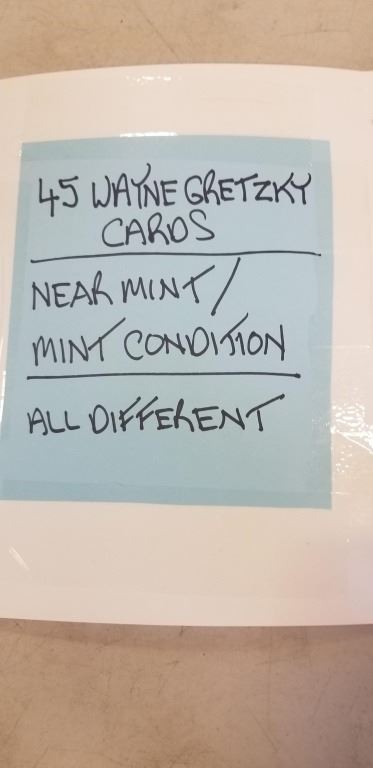 45 WAYNE GRETZKY
CARDS
NEAR MINT/
MINT CONDITION
ALL DIFFERENT